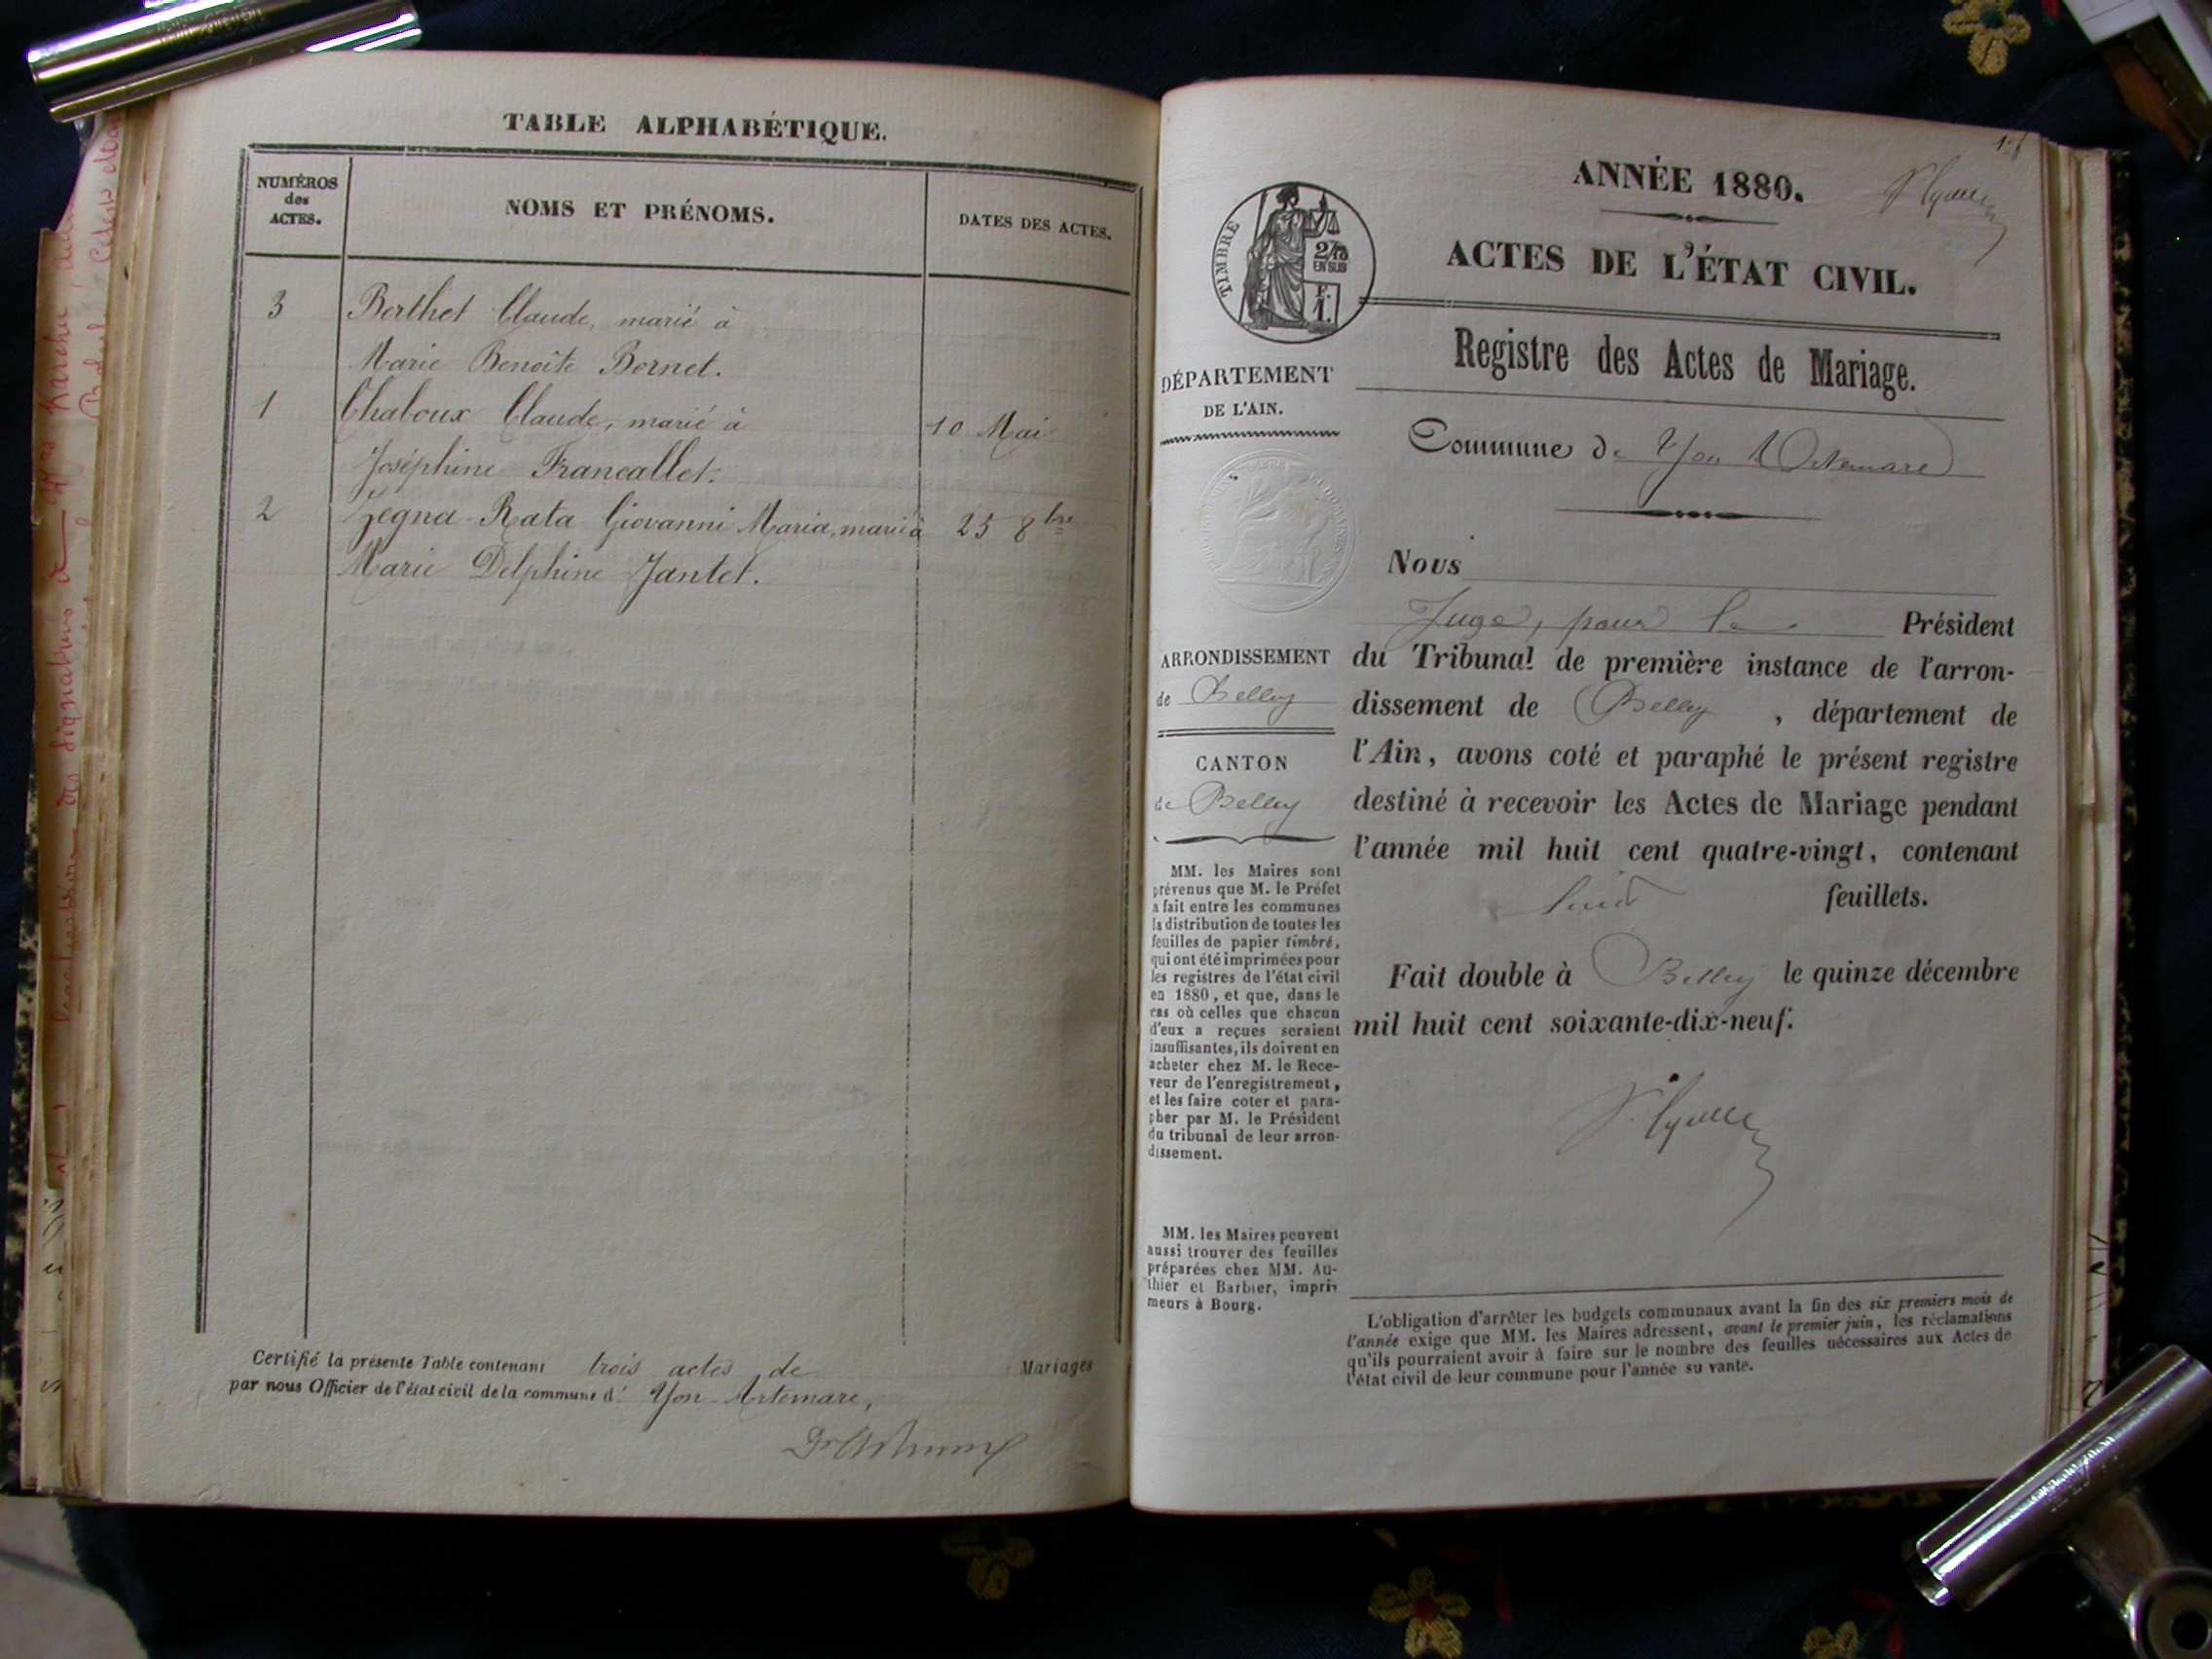 TABLE ALPHABÉTIQUE.
NUMÉROS
des
ACTES.
NOMS ET PRÉNOMS.
DATES DES ACTES.
3 Berthet Claude, marié à
Marie Benoîte Bornet.
1 Chaboux Claude, marié à 10 Mai
Joséphine Francallet.
2 Zegna-Rata Giovanni Maria, marié à 25 8bre
Marie Delphine Jantet.
Certifié la présente Table contenant trois actes de Mariages
par nous Officier de l'état civil de la commune d' Yon-Artemare,
ANNÉE 1880.
ACTES DE L'ÉTAT CIVIL.
TIMBRE
2/10
EN SUS
F.
1.
Registre des Actes de Mariage.
DÉPARTEMENT
DE L'AIN.
Commune de Yon Artemare
Nous
Juge, pour le Président
du Tribunal de première instance de l'arron-
dissement de Belley, département de
l'Ain, avons coté et paraphé le présent registre
destiné à recevoir les Actes de Mariage pendant
l'année mil huit cent quatre-vingt, contenant
huit feuillets.
Fait double à Belley le quinze décembre
mil huit cent soixante-dix-neuf.
ARRONDISSEMENT
de Belley
CANTON
de Belley
MM. les Maires sont
prévenus que M. le Préfet
a fait entre les communes
la distribution de toutes les
feuilles de papier timbré,
qui ont été imprimées pour
les registres de l'état civil
en 1880, et que, dans le
cas où celles que chacun
d'eux a reçues seraient
insuffisantes, ils doivent en
acheter chez M. le Rece-
veur de l'enregistrement,
et les faire coter et para-
pher par M. le Président
du tribunal de leur arron-
dissement.
MM. les Maires peuvent
aussi trouver des feuilles
préparées chez MM. Au-
thier et Barbier, impri-
meurs à Bourg.
L'obligation d'arrêter les budgets communaux avant la fin des six premiers mois de
l'année exige que MM. les Maires adressent, avant le premier juin, les réclamations
qu'ils pourraient avoir à faire sur le nombre des feuilles nécessaires aux Actes de
l'état civil de leur commune pour l'année su vante.